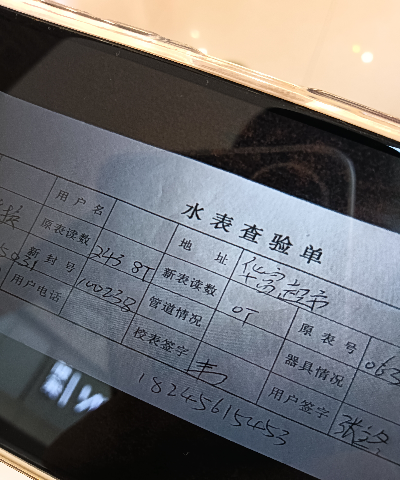 水表查验单
用户名 地址 华富超市
原表读数 243.8T 新表读数 0T 原表号 063
新封号 100238 管道情况 器具情况
用户电话 校表签字 用户签字
18245615453